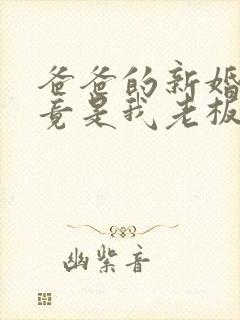 爸爸的新婚
竟是我老板
幽紫音